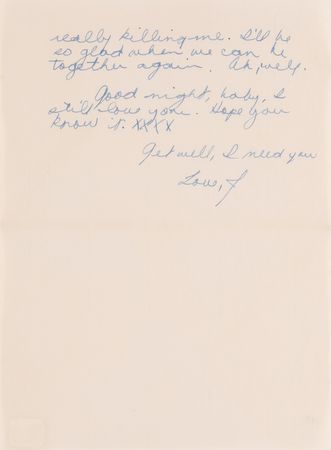 really killing me. I'll be
so glad when we can be
together again. Ah, well.
Good night, baby, I
still love you. Hope you
know it. XXXX
Get well, I need you
Love, J